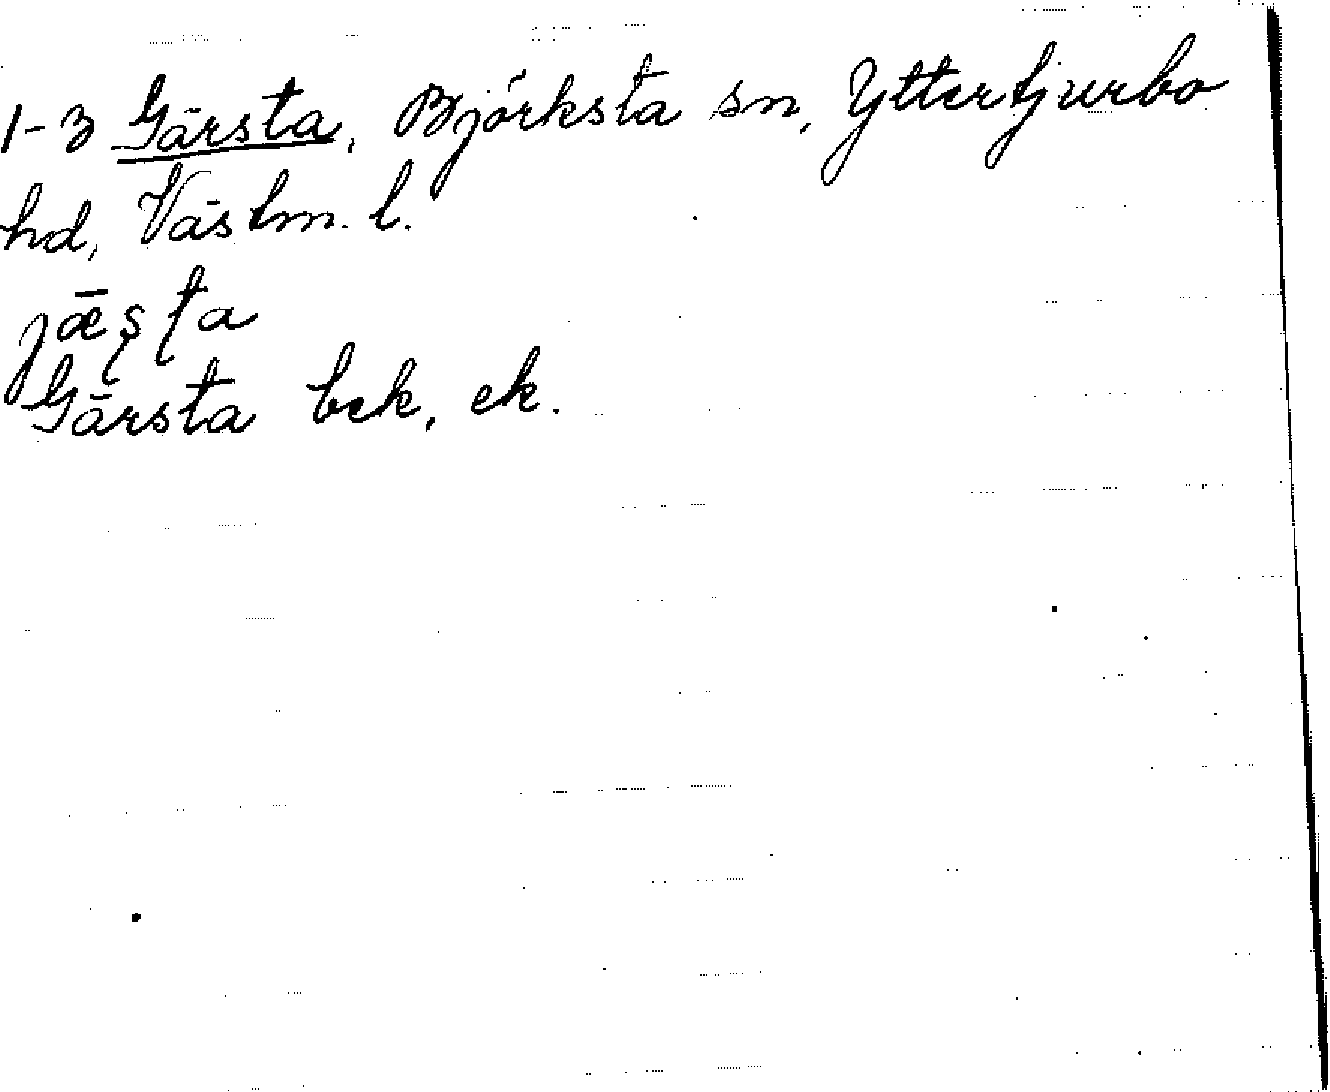 1-3 Gärsta, Björksta sn, Yttertjurbo
hd, Västm. l.
jǣʂʈa
Gärsta bek, ek.